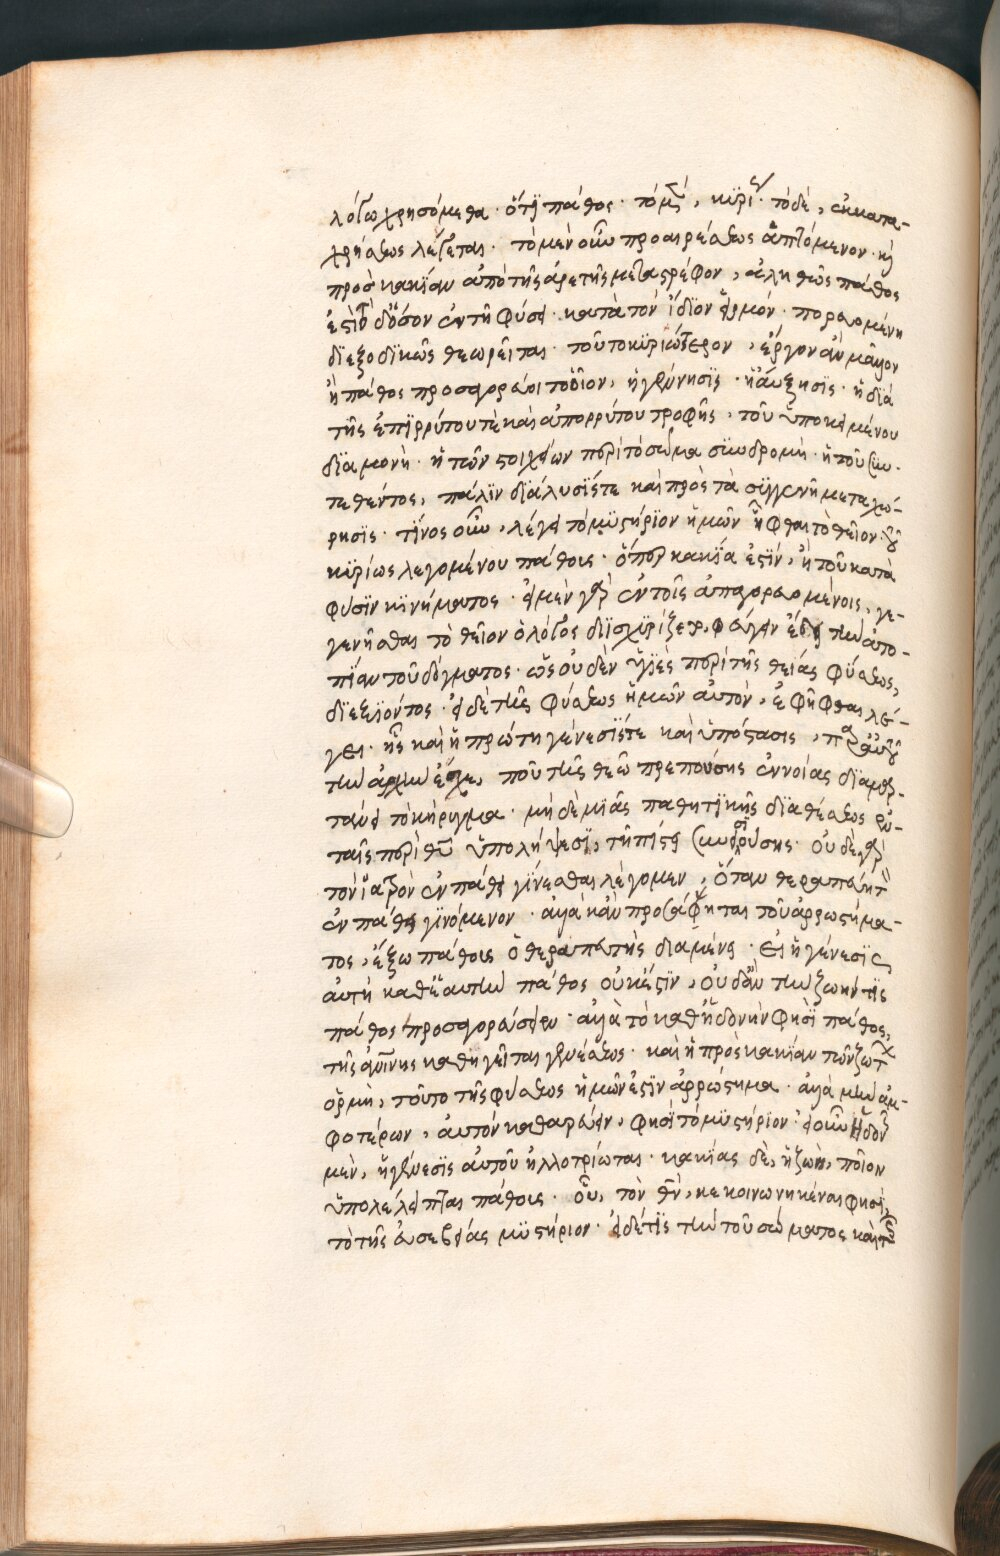 λόγω χρησόμεθα · ὅτι πάθος · τὸ μὲν, κυρί · τὸ δὲ, ἐκ κατα-
χρήσεως λέγεται · τὸ μὲν οὖν προαιρέσεως ἁπτόμενον · καὶ
πρὸς κακίαν ἀπὸ τῆς ἀρετῆς μεταστρέφον, ἀληθῶς πάθος
ἐστὶ τὸ δ' ὅσον ἐν τῇ φύσει · κατὰ τὸν ἴδιον εἱρμόν · πορευομένη
διεξοδικῶς θεωρεῖται · τοῦτο κυριώτερον, ἔργον ἂν μᾶλλον
ἢ πάθος προσαγορεύοιτο οἷον, ἡ γέννησις · ἡ αὔξησις · ἡ διὰ
τῆς ἐπιρρύτου τὲ καὶ ἀπορρύτου τροφῆς, τοῦ ὑποκειμένου
διαμονὴ · ἡ τῶν στοιχείων περὶ τὸ σῶμα συνδρομὴ · ἡ τοῦ συν-
τεθέντος, πάλιν διάλυσίς τε καὶ πρὸς τὰ συγγενῆ μεταχώ-
ρησις · τίνος οὖν, λέγει τὸ μυστήριον ἡμῶν ἧφθαι τὸ θεῖον · τοῦ
κυρίως λεγομένου πάθους · ὅπερ κακία ἐστὶν, ἢ τοῦ κατὰ
φύσιν κινήματος · εἰ μὲν γὰρ ἐν τοῖς ἀπαγορευομένοις, γε-
γενῆσθαι τὸ θεῖον ὁ λόγος διϊσχυρίζετο, φεύγειν ἔδει τὴν ἀτο-
πίαν τοῦ δόγματος · ὡς οὐδὲν ὑγιὲς περὶ τῆς θείας φύσεως,
διεξιόντος · εἰ δὲ τῆς φύσεως ἡμῶν αὐτὸν, ἐφῆφθαι λέ-
γει · ἧς καὶ ἡ πρώτη γένεσίς τε καὶ ὑπόστασις, παρ' αὐτοῦ
τὴν ἀρχὴν ἔσχε, ποῦ τῆς θεῷ πρεπούσης ἐννοίας διαμαρ-
τάνει τὸ κήρυγμα · μὴ δὲ μιᾶς παθητικῆς διαθέσεως ἐν
ταῖς περὶ θεοῦ ὑπολήψεσι, τῇ πίστει συνεισιούσης · οὐδὲ γὰρ
τὸν ἰατρὸν ἐν πάθει γίνεσθαι λέγομεν, ὅταν θεραπεύῃ τὸν
ἐν πάθει γινόμενον · ἀλλὰ κἂν προσάψηται τοῦ ἀρρωστήμα-
τος, ἔξω πάθους ὁ θεραπευτὴς διαμένει · εἰ ἡ γένεσις
αὐτὴ καθ' ἑαυτὴν πάθος οὐκ ἔστιν, οὐδ' ἂν τὴν ζωήν τις
πάθος προσαγορεύσειεν · ἀλλὰ τὸ καθ' ἡδονὴν φησὶ πάθος,
τῆς ἀνθρωπίνης καθηγεῖται γεννέσεως · καὶ ἡ πρὸς κακίαν τῶν ζώντων
ὁρμὴ, τοῦτο τῆς φύσεως ἡμῶν ἐστὶν ἀρρώστημα · ἀλλὰ μὴν ἀμ-
φοτέρων, αὐτὸν καθαρεύειν, φησὶ τὸ μυστήριον · εἰ οὖν ἡδονῆς
μὲν, ἡ γέννεσις αὐτοῦ ἠλλοτρίωται · κακίας δὲ, ἡ ζωὴ, ποῖον
ὑπολέλειπται πάθους · οὗ, τὸν θεὸν, κεκοινωνηκέναι φησὶ,
τὸ τῆς εὐσεβείας μυστήριον · εἰ δέ τις τὴν τοῦ σώματος καὶ τῆς